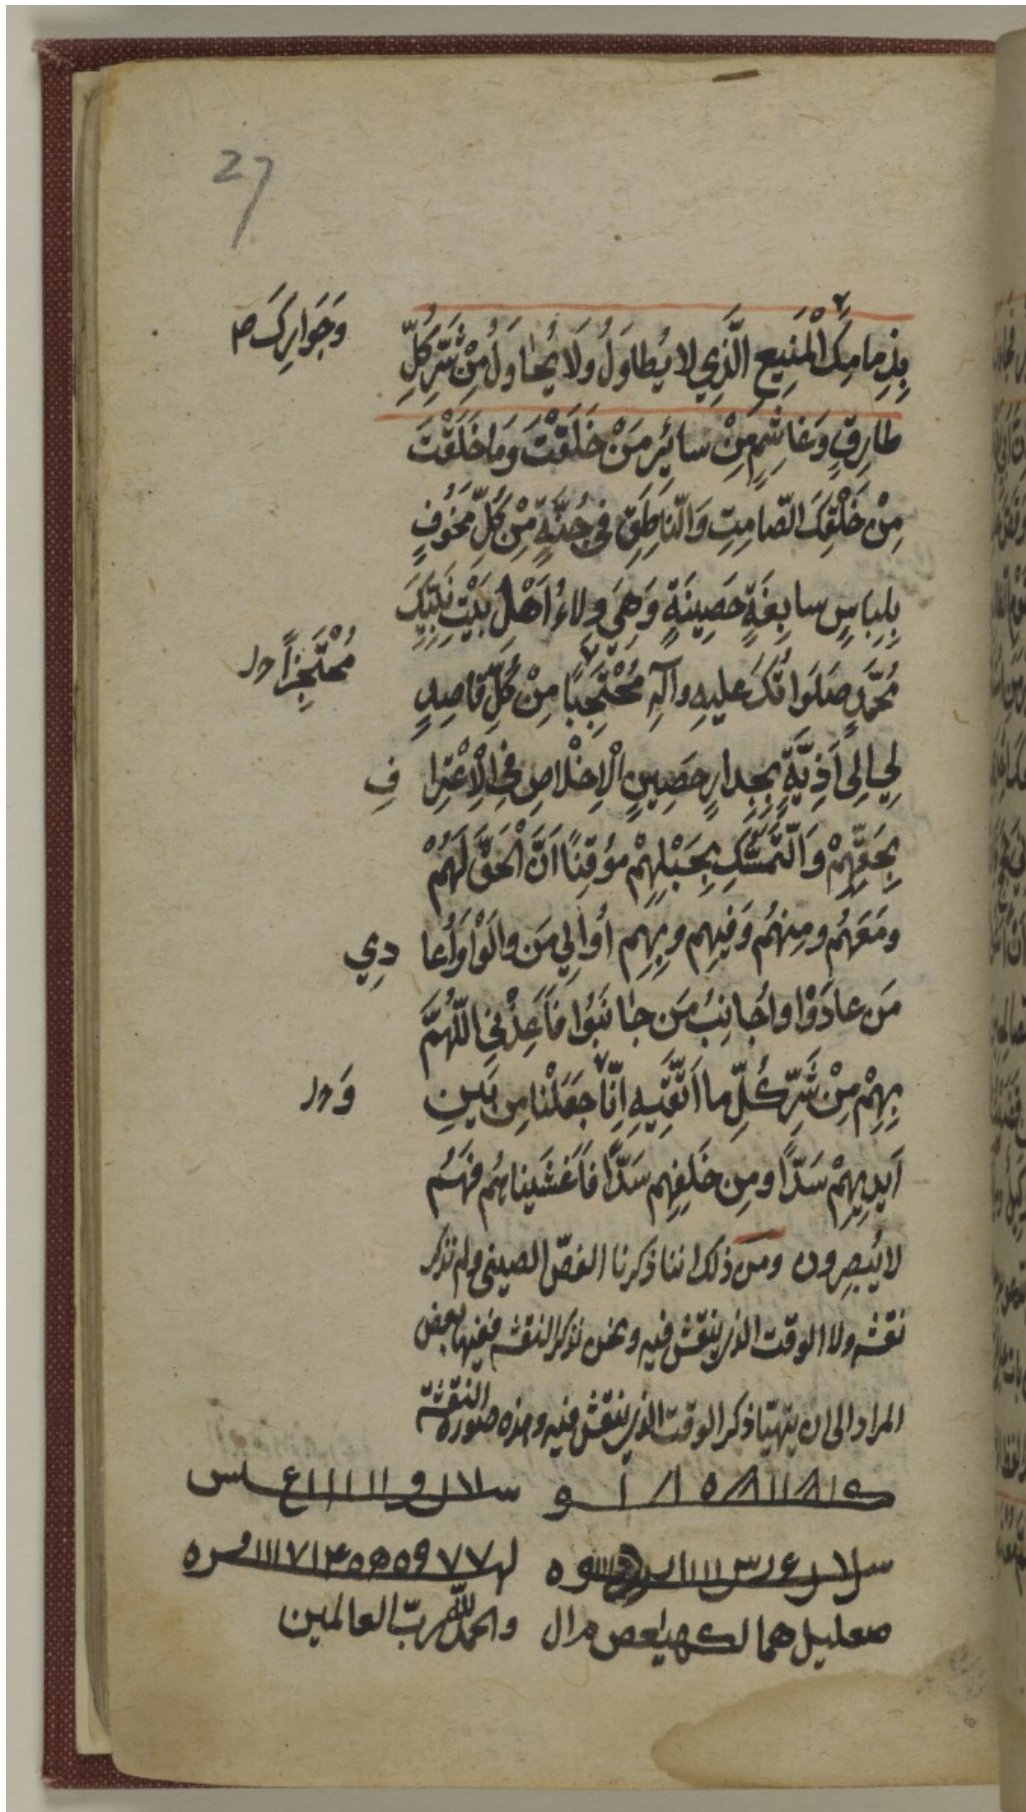 27
بِذِمامِكَ الْمَنِيعِ الَّذِي لا يُطاوَلُ وَلَا يُحاوَلُ مِنْ شَرِّ كُلِّ
وَجَوارِكَ صح
طارِقٍ وَغاشِمٍ مِنْ سائِرِ مَنْ خَلَقْتَ وَمَا خَلَقْتَ
مِنْ خَلْقِكَ الصّامِتِ وَالنّاطِقِ فِي جُنَّةٍ مِنْ كُلِّ مَخُوفٍ
بِلِباسٍ سابِغَةٍ حَصِينَةٍ وَهِيَ وِلاءُ اَهْلِ بَيْتِ نَبِيِّكَ
مُحَمَّدٍ صَلَوَاتُكَ عليهِ وآلِهِ مُحْتَجِبًا مِنْ كُلِّ قاصِدٍ
مُحْتَجِزاً
لِي اِلى اَذِيَّةٍ بِجِدارٍ حَصِينِ الْاِخْلاصِ فِي الْاِعْتِرا فِ
بِحَقِّهِمْ وَالتَّمَسُّكِ بِحَبْلِهِمْ مُوقِنًا اَنَّ الْحَقَّ لَهُمْ
ومَعَهُم ومِنهُم وَفيهِم وبِهِم أُوالِي مَن والَوْا وَأُعا دِي
مَن عادَوْا واُجانِبُ مَن جانَبُوا فَاَعِذْنِي اللّهُمَّ
بِهِمْ مِنْ شَرِّ كُلِّ ما اَتَّقِيهِ اِنّا جَعَلْنا مِن بَينِ
وَ
اَيدِيهِمْ سَدًّا ومِن خَلفِهِم سَدًّا فَاَغشَيناهُم فَهُم
لا يُبصِرون ومن ذلك اننا ذكرنا الفصّ الصينى ولم نذكر
نقشه ولا الوقت الذى ينقش فيه ونحن نذكر النقشه ففيها بعض
المراد الى ان يتهيّا ذكر الوقت الذى ينقش فيه وهذه صورة النقشة
صعليل هما لكهيعص والحمد لله رب العالمين